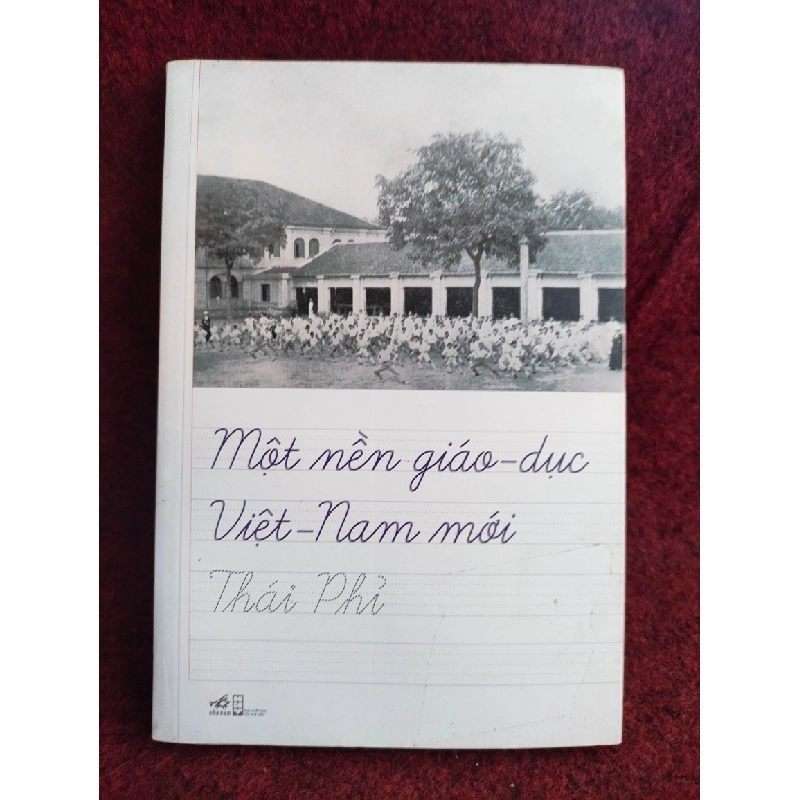 Một nền giáo-dục
Việt-Nam mới
Thái Phỉ
nhã nam